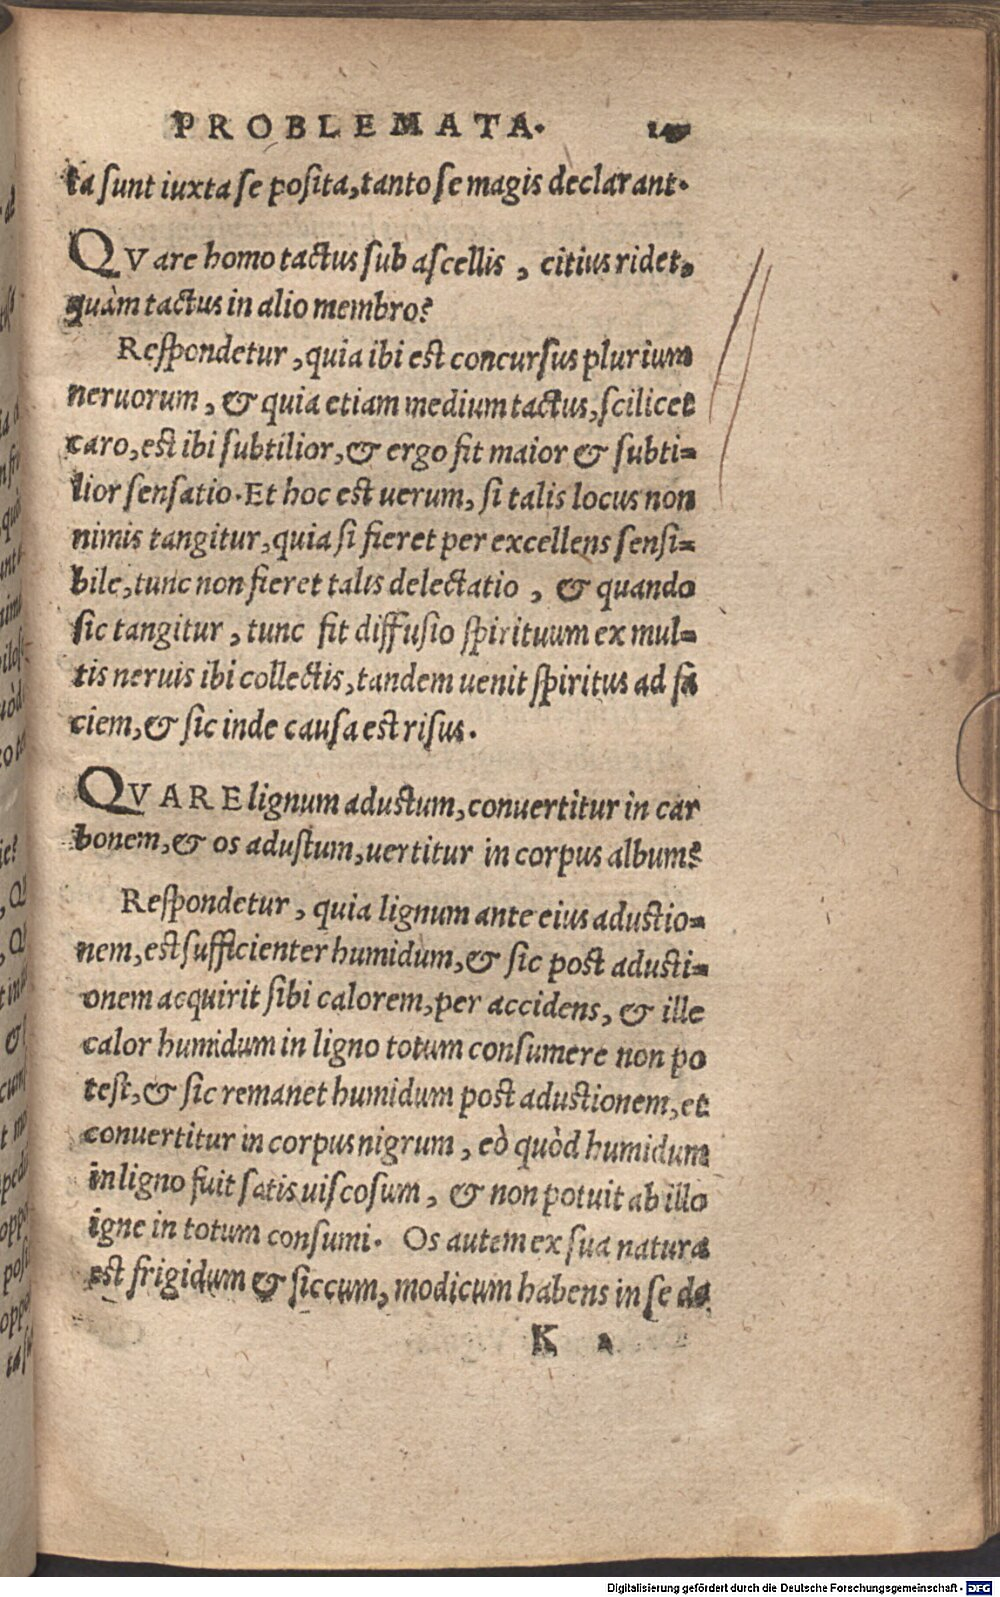 PROBLEMATA.
ta sunt iuxta se posita, tanto se magis declarant.
QVare homo tactus sub ascellis, citius ridet,
quàm tactus in alio membro?
Respondetur, quia ibi est concursus plurium
neruorum, & quia etiam medium tactus, scilicet
caro, est ibi subtilior, & ergo fit maior & subti=
lior sensatio. Et hoc est uerum, si talis locus non
nimis tangitur, quia si fieret per excellens sensi=
bile, tunc non fieret talis delectatio, & quando
sic tangitur, tunc fit diffusio spirituum ex mul=
tis neruis ibi collectis, tandem uenit spiritus ad fa
ciem, & sic inde causa est risus.
QVARE lignum adustum, conuertitur in car
bonem, & os adustum, uertitur in corpus album?
Respondetur, quia lignum ante eius adustio=
nem, est sufficienter humidum, & sic post adusti=
onem acquirit sibi calorem, per accidens, & ille
calor humidum in ligno totum consumere non po
test, & sic remanet humidum post adustionem, et
conuertitur in corpus nigrum, eò quòd humidum
in ligno fuit satis uiscosum, & non potuit ab illo
igne in totum consumi. Os autem ex sua natura
est frigidum & siccum, modicum habens in se de
K
Digitalisierung gefördert durch die Deutsche Forschungsgemeinschaft - DFG